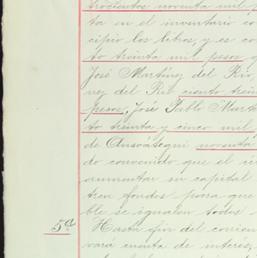 trocientos noventa mil p
ta en el inventario co
cipio los libros, y es co
to treinta mil pesos q
José Martinez del Rio
nez del Rio ciento trein
pesos; José Pablo Mart
to treinta y cinco mil
de Ansoátegui noventa
do convenido que el i
aumentar su capital
tren fondos para que
ble se igualen todos
5ª Hasta fin del corrien
vará cuenta de interes,